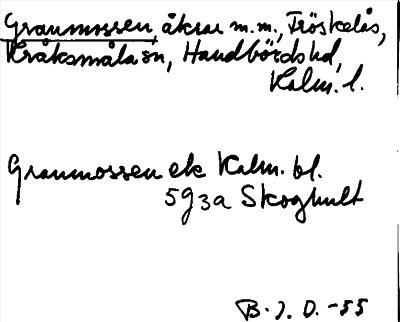 Granmossen åkrar m.m., Fröskelås,
Kråksmåla sn, Handbörds hd,
Kalm. l.
Granmossen ek Kalm. bl.
5g3a Skoghult
B. J. D. -55